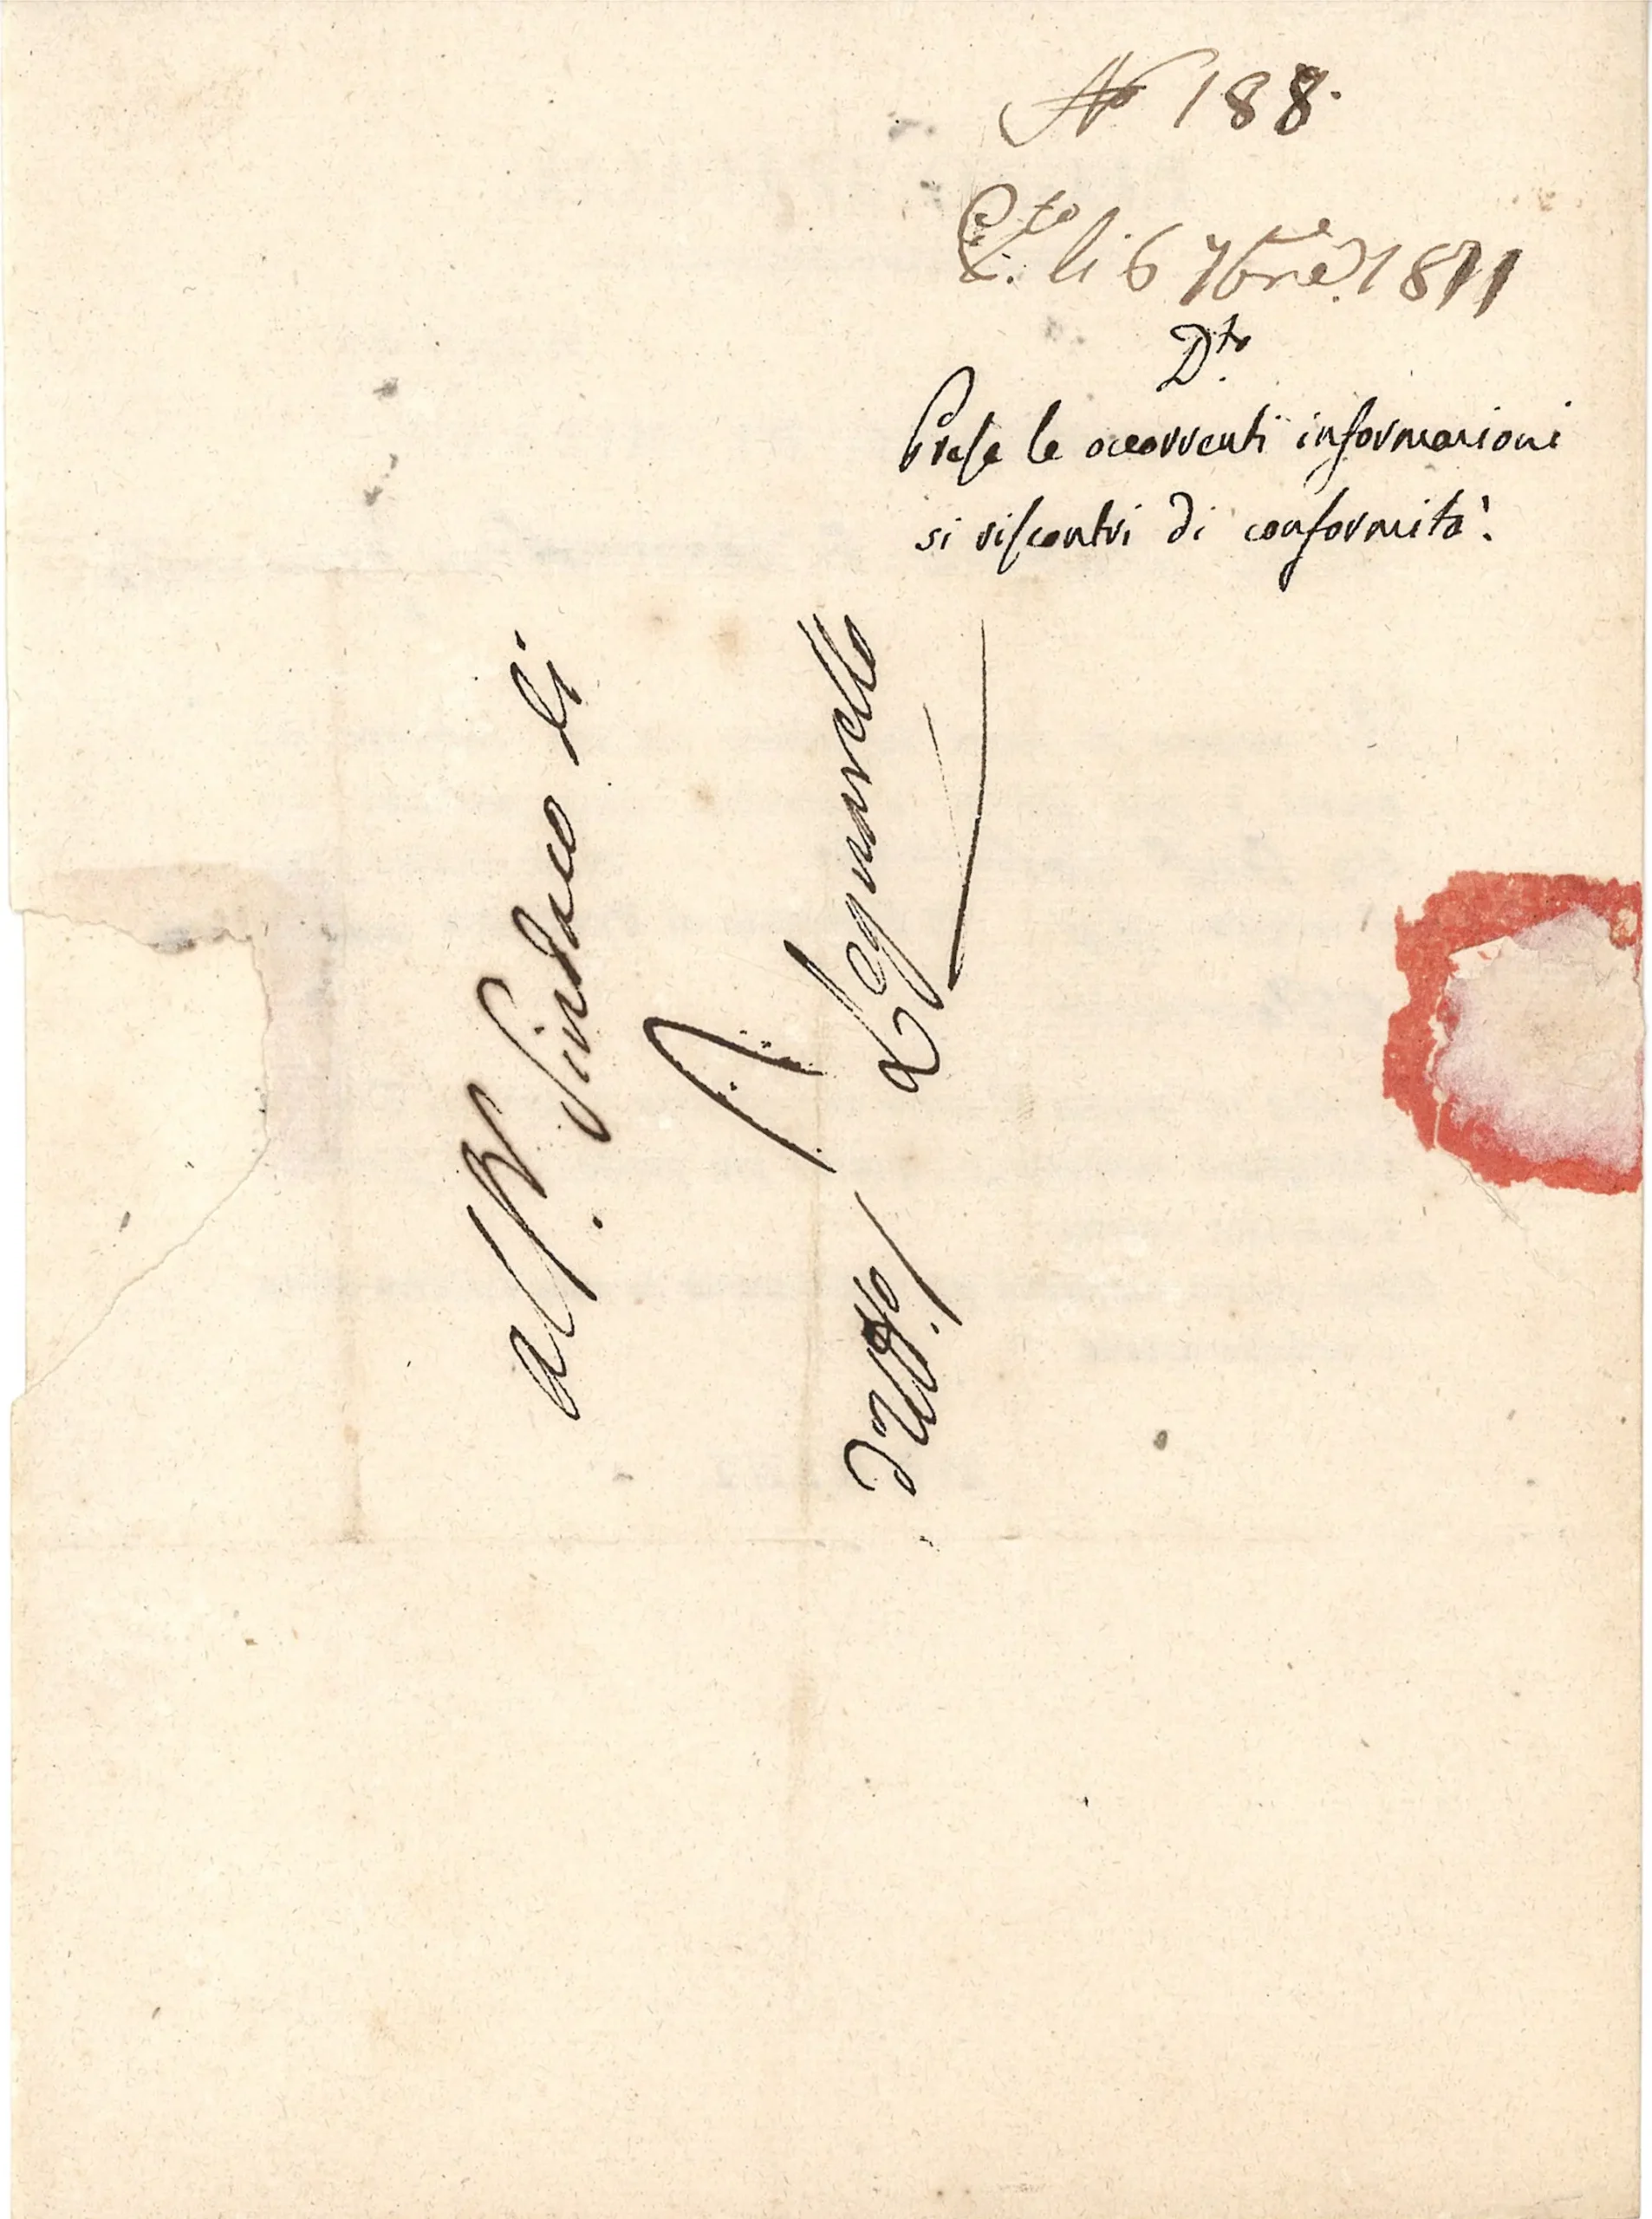 No 188.
P.to li 6 7bre. 1811
D.to
Prese le occorrenti informazioni
si riscontri di conformità.
Al Sindaco di
Legnarello
d'Uff.o